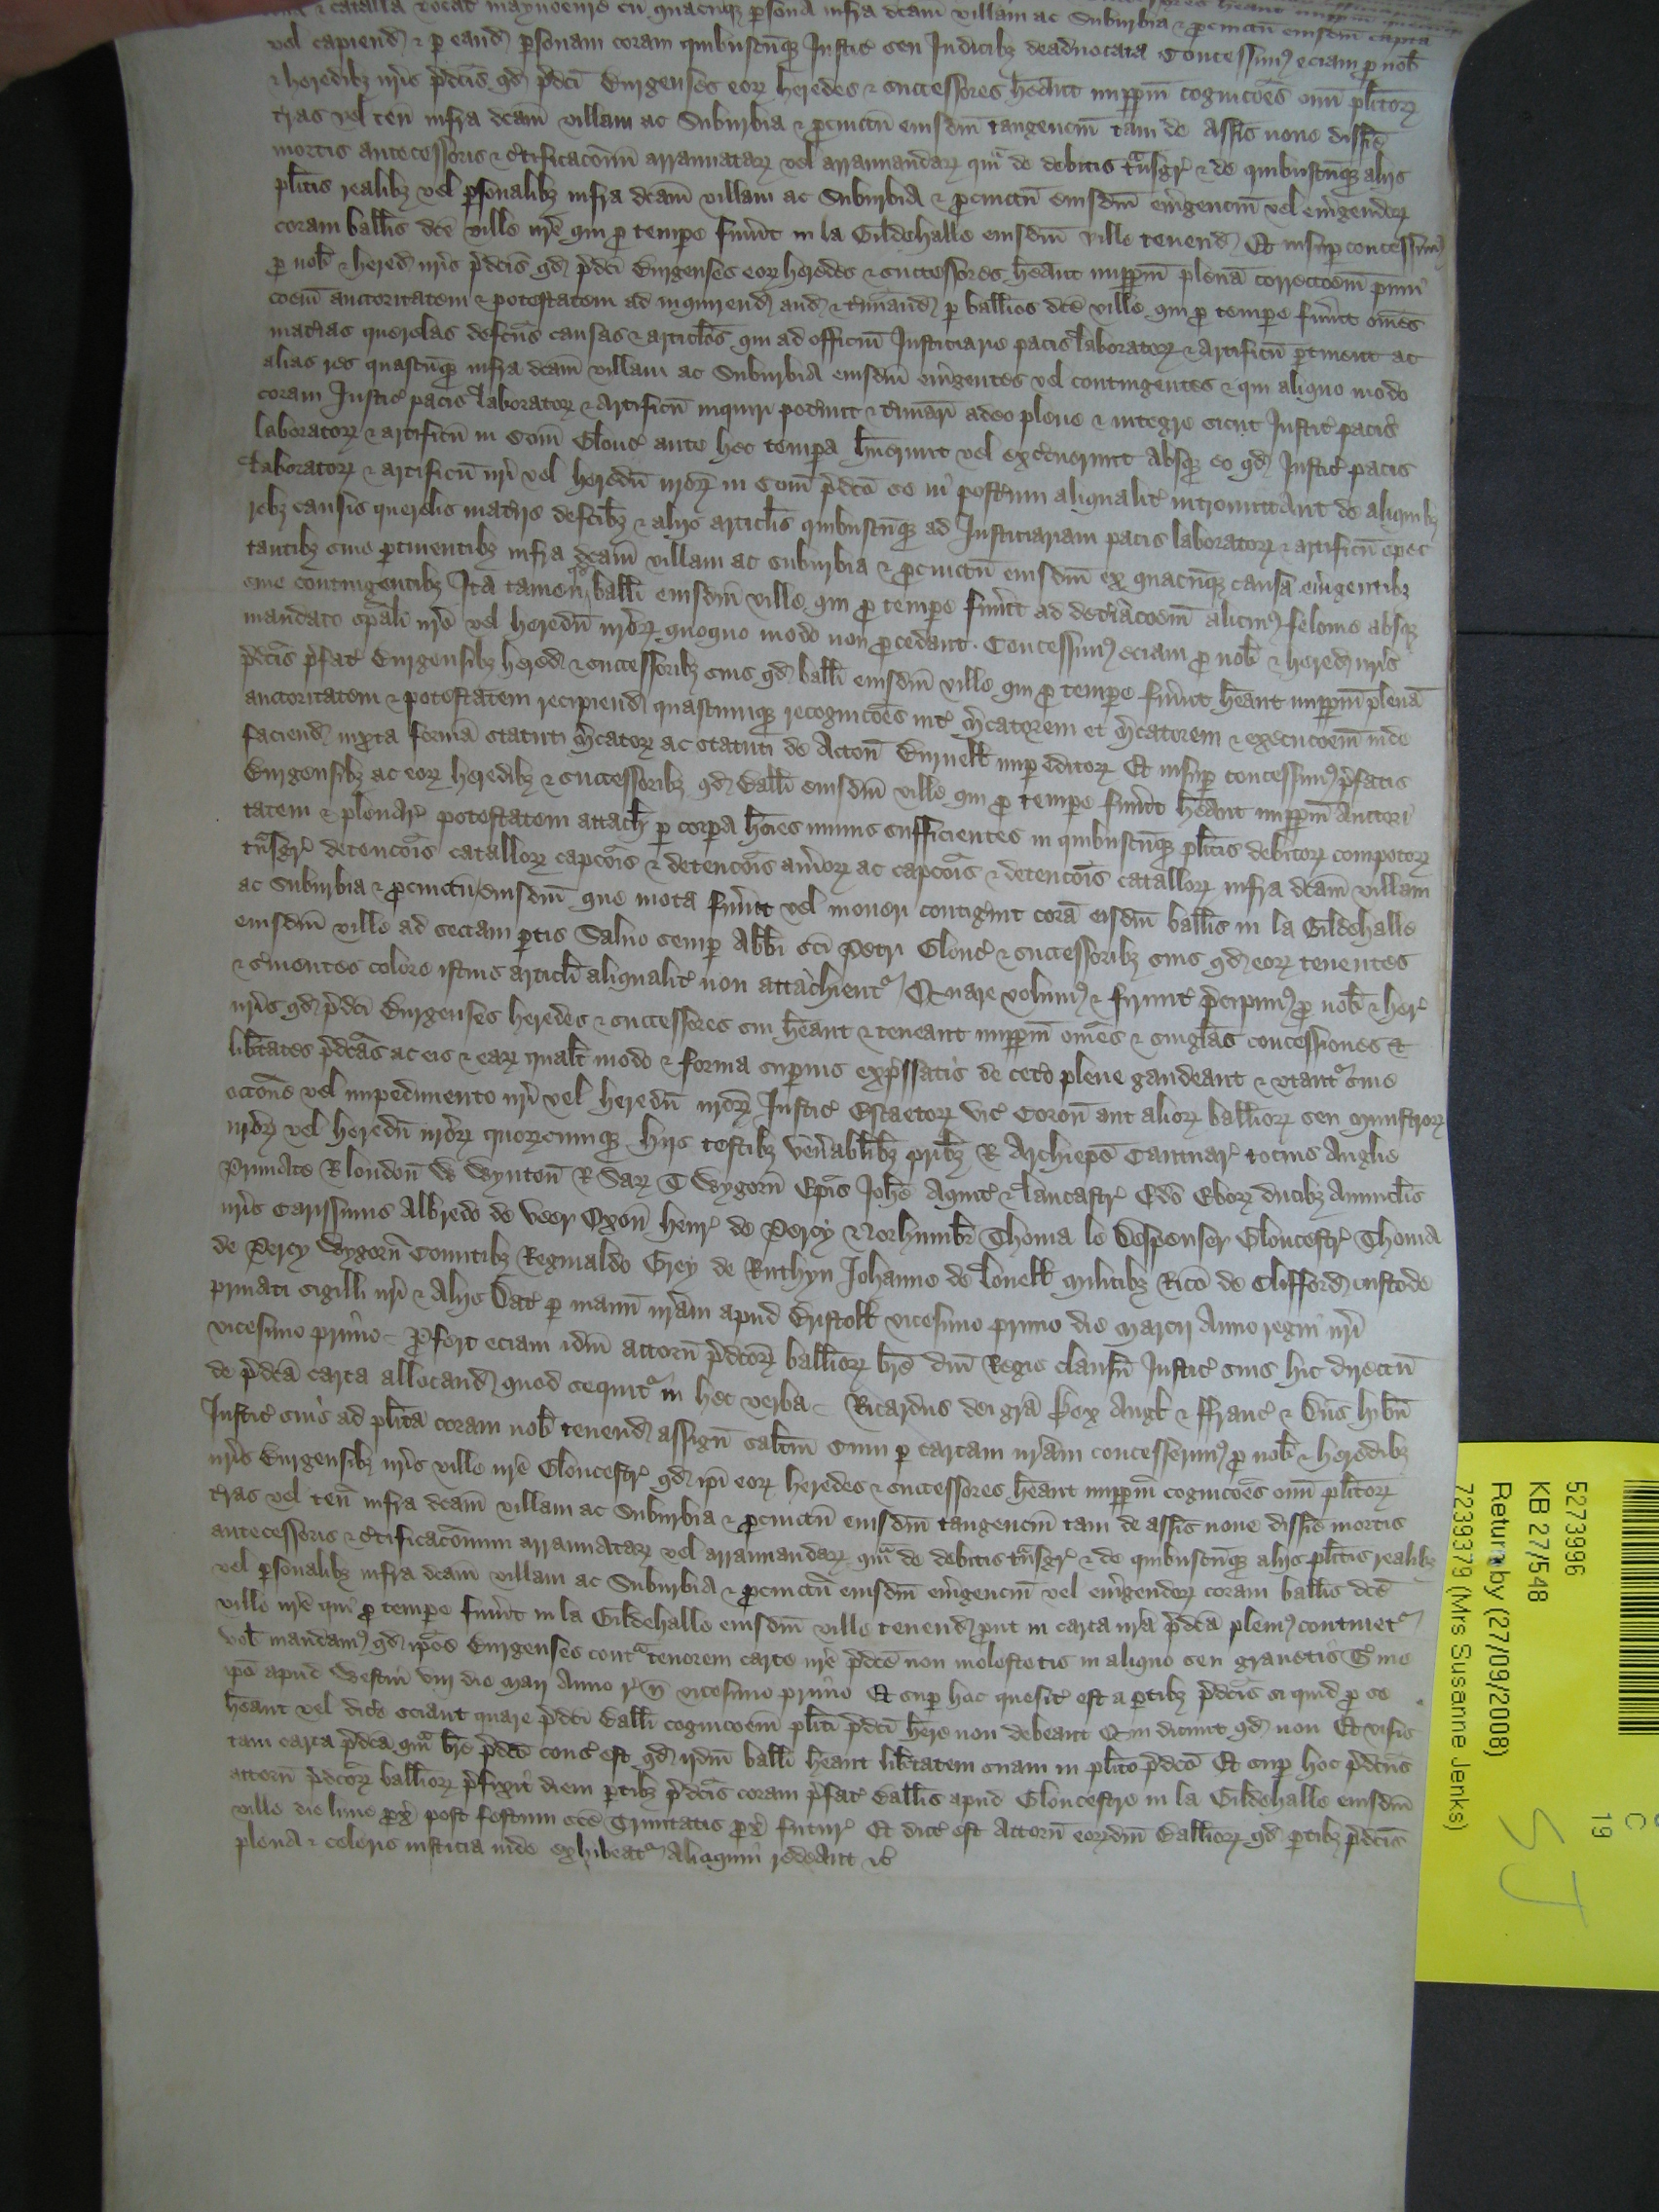 & catalla vocat maynoenre cū quacūqȝ psona infra dcam villam ac Suburbia & pcinctū eiusdm capta
vel capiend & p eand psonam coram quibuscūqȝ Justic seu Judicibȝ deaduocata Concessimꝰ eciam p nob
& heredibȝ nris pdcis qd pdci Burgenses eorꝝ heredes & successores heant imppm cognicoes omi plitorꝝ
tras vel ten infra dcam villam ac Suburbia & pcinctū eiusdm tangenciū tam de Assis noue dissīe
mortis antecessoris & ctificacoīm arramatarꝝ vel arramandarꝝ qm de debitis tnsgr & de quibuscūqȝ alijs
plitis realibȝ vel psonalibȝ infra dcam villam ac Suburbia & pcinctū eiusdm emgenciū vel emgendorꝝ
coram ballis dce ville nre qui p tempe fuint in la Gildehalle eiusdm ville tenend Et insup concessimꝰ
p nob & hered nris pdcis qd pdci Burgenses eorꝝ heredes & successores heant imppm plenā correccoem puni
coem auctoritatem & potestatem ad inquirend aud & tminand p ballios dce ville qui p tempe fuint omes
matias querelas defcus causas & articlos qui ad officiū Justiciarie pacis laboratorꝝ & artificū ptinent ac
alias res quascūqȝ infra dcam villam ac Suburbia eiusdm emgentes vel contingentes & qui aliquo modo
coram Justic pacis laboratorꝝ & Artificū inquiri potint & tminari adeo plene & integre sicut Justic pacis
laboratorꝝ & artificū in Com Glouc ante hec tempa huerunt vel exercuerunt Absqȝ eo qd Justic pacis
laboratorꝝ & artificū nri vel heredū nrorꝝ in Com pdco se in postum aliqualit intromittant de aliquibȝ
rebȝ causis querelis matijs defctibȝ & alijs articlis quibuscūqȝ ad Justiciariam pacis laboratorꝝ & artificū spec
tantibȝ siue ptinentibȝ infra dcam villam ac suburbia & pcinctū eiusdm ex quacūqȝ causa emgentibȝ
siue contingentibȝ Ita tamen qd balli eiusdm ville qui p tempe fuint ad detmiacoem alicuiꝰ felonie absqȝ
mandato spali nro vel heredū nrorꝝ quoquo modo non pcedant. Concessimꝰ eciam p nob & hered nris
pdcis pfat Burgensibȝ hered & successoribȝ suis qd balli eiusdm ville qui p tempe fuint heant imppm plenā
auctoritatem & potestatem recipiend quascumqȝ recognicoes int mcatorem et mcatorem & execucoem inde
faciend iuxta formā statuti mcatorꝝ ac statuti de Acton Burnell nup editorꝝ Et insup concessimꝰ pfatis
Burgensibȝ ac eorꝝ heredibȝ & successoribȝ qd Balli eiusdm ville qui p tempe fuint heant imppm Auctori
tatem & plenar potestatem attach p corpa hoies minus sufficientes in quibuscūqȝ plitis debitorꝝ compotorꝝ
tnsgr detencois catallorꝝ capcois & detencois aūiorꝝ ac capcois & detencois catallorꝝ infra dcam villam
ac Suburbia & pcinctū eiusdm que mota fuint vel moueri contigint corā eisdm ballis in la Gildehalle
eiusdm ville ad sectam ptis Saluo semp Abbi sci Petri Glouc & successoribȝ suis qd eorꝝ tenentes
& suientes colore istius articli aliqualit non attachient Quare volumꝰ & firmit pcipimꝰ p nob & her
nris qd pdci Burgenses heredes & successores sui heant & teneant imppm omes & singlas concessiones &
libtates pdcas ac eis & earꝝ qualt modo & forma supius expssatis de ceto plene gaudeant & vtant sine
occone vel impedimento nri vel heredū nrorꝝ Justic Escaetorꝝ vic Coron aut aliorꝝ balliorꝝ seu ministrorꝝ
nrorꝝ vel heredū nrorꝝ quorꝝcumqȝ Hijs testibȝ venablibȝ pribȝ R Archiepo Cantuar tocius Anglie
Primate R London W Wynton R Sarꝝ T Wygorn Epis Johe Aquit & Lancastr Edo Eborꝝ ducibȝ Auunclis
nris Carissimis Albredo de Veer Oxon Henr de Percy Norhumbr Thoma le Despenser Gloucestr Thoma
de Percy Wygorn Comitibȝ Reginaldo Grey de Ruthyn Johanne de Louell militibȝ Rico de Clifford custode
priuati sigilli nri & Alijs Dat p manū nram apud Bristoll vicesimo primo die Marcij Anno regni nri
vicesimo primo - Pfert eciam idm attorn pdcorꝝ balliorꝝ bre dni Regis clausū Justic suis hic directū
de pdca carta allocand quod sequit in hec verba - Ricardus dei gra Rex Angl & Franc & Dns Hibn
Justic suis ad plita coram nob tenend assign saltm Cum p cartam nram concesserimꝰ p nob & heredibȝ
nris Burgensibȝ nris ville nre Gloucestr qd ipi eorꝝ heredes & successores heant imppm cognicoes omi plitorꝝ
tras vel ten infra dcam villam ac Suburbia & pcinctū eiusdm tangenciū tam de assis noue dissīe mortis
antecessoris & ctificaconum arramatarꝝ vel arramandarꝝ qm de debitis tnsgr & de quibuscūqȝ alijs plitis realibȝ
vel psonalibȝ infra dcam villam ac Suburbia & pcinctū eiusdm emgenciū vel emgendorꝝ coram ballis dce
ville nre qui p tempe fuint in la Gildehalle eiusdm ville tenend put in carta nra pdca pleniꝰ continet
vob mandamꝰ qd ipos Burgenses contra tenorem carte nre pdce non molestetis in aliquo seu grauetis T me
ipo apud Westm viij die Maij Anno r n vicesimo primo Et sup hoc quesit est a ptibȝ pdcis si quid p se
heant vel dice sciant quare pdci Balli cognicoem pliti pdci here non debeant Qui dicunt qd non Et visis
tam carta pdca qm bre pdco cons est qd ijdm balli heant libtatem suam in plito pdco Et sup hoc pdcus
attorn pdcorꝝ balliorꝝ pfigit diem ptibȝ pdcis coram pfat Ballis apud Gloucestre in la Gildehalle eiusdm
ville die lune px post festum sce Trinitatis px futur Et dict est Attorn eorꝝdm Balliorꝝ qd ptibȝ pdcis
plena & celeris iusticia inde exhibeat Alioquin redeant &c
5273996
KB 27/548
Return by (27/09/2008)
7239379 (Mrs Susanne Jenks)
C
19
SJ